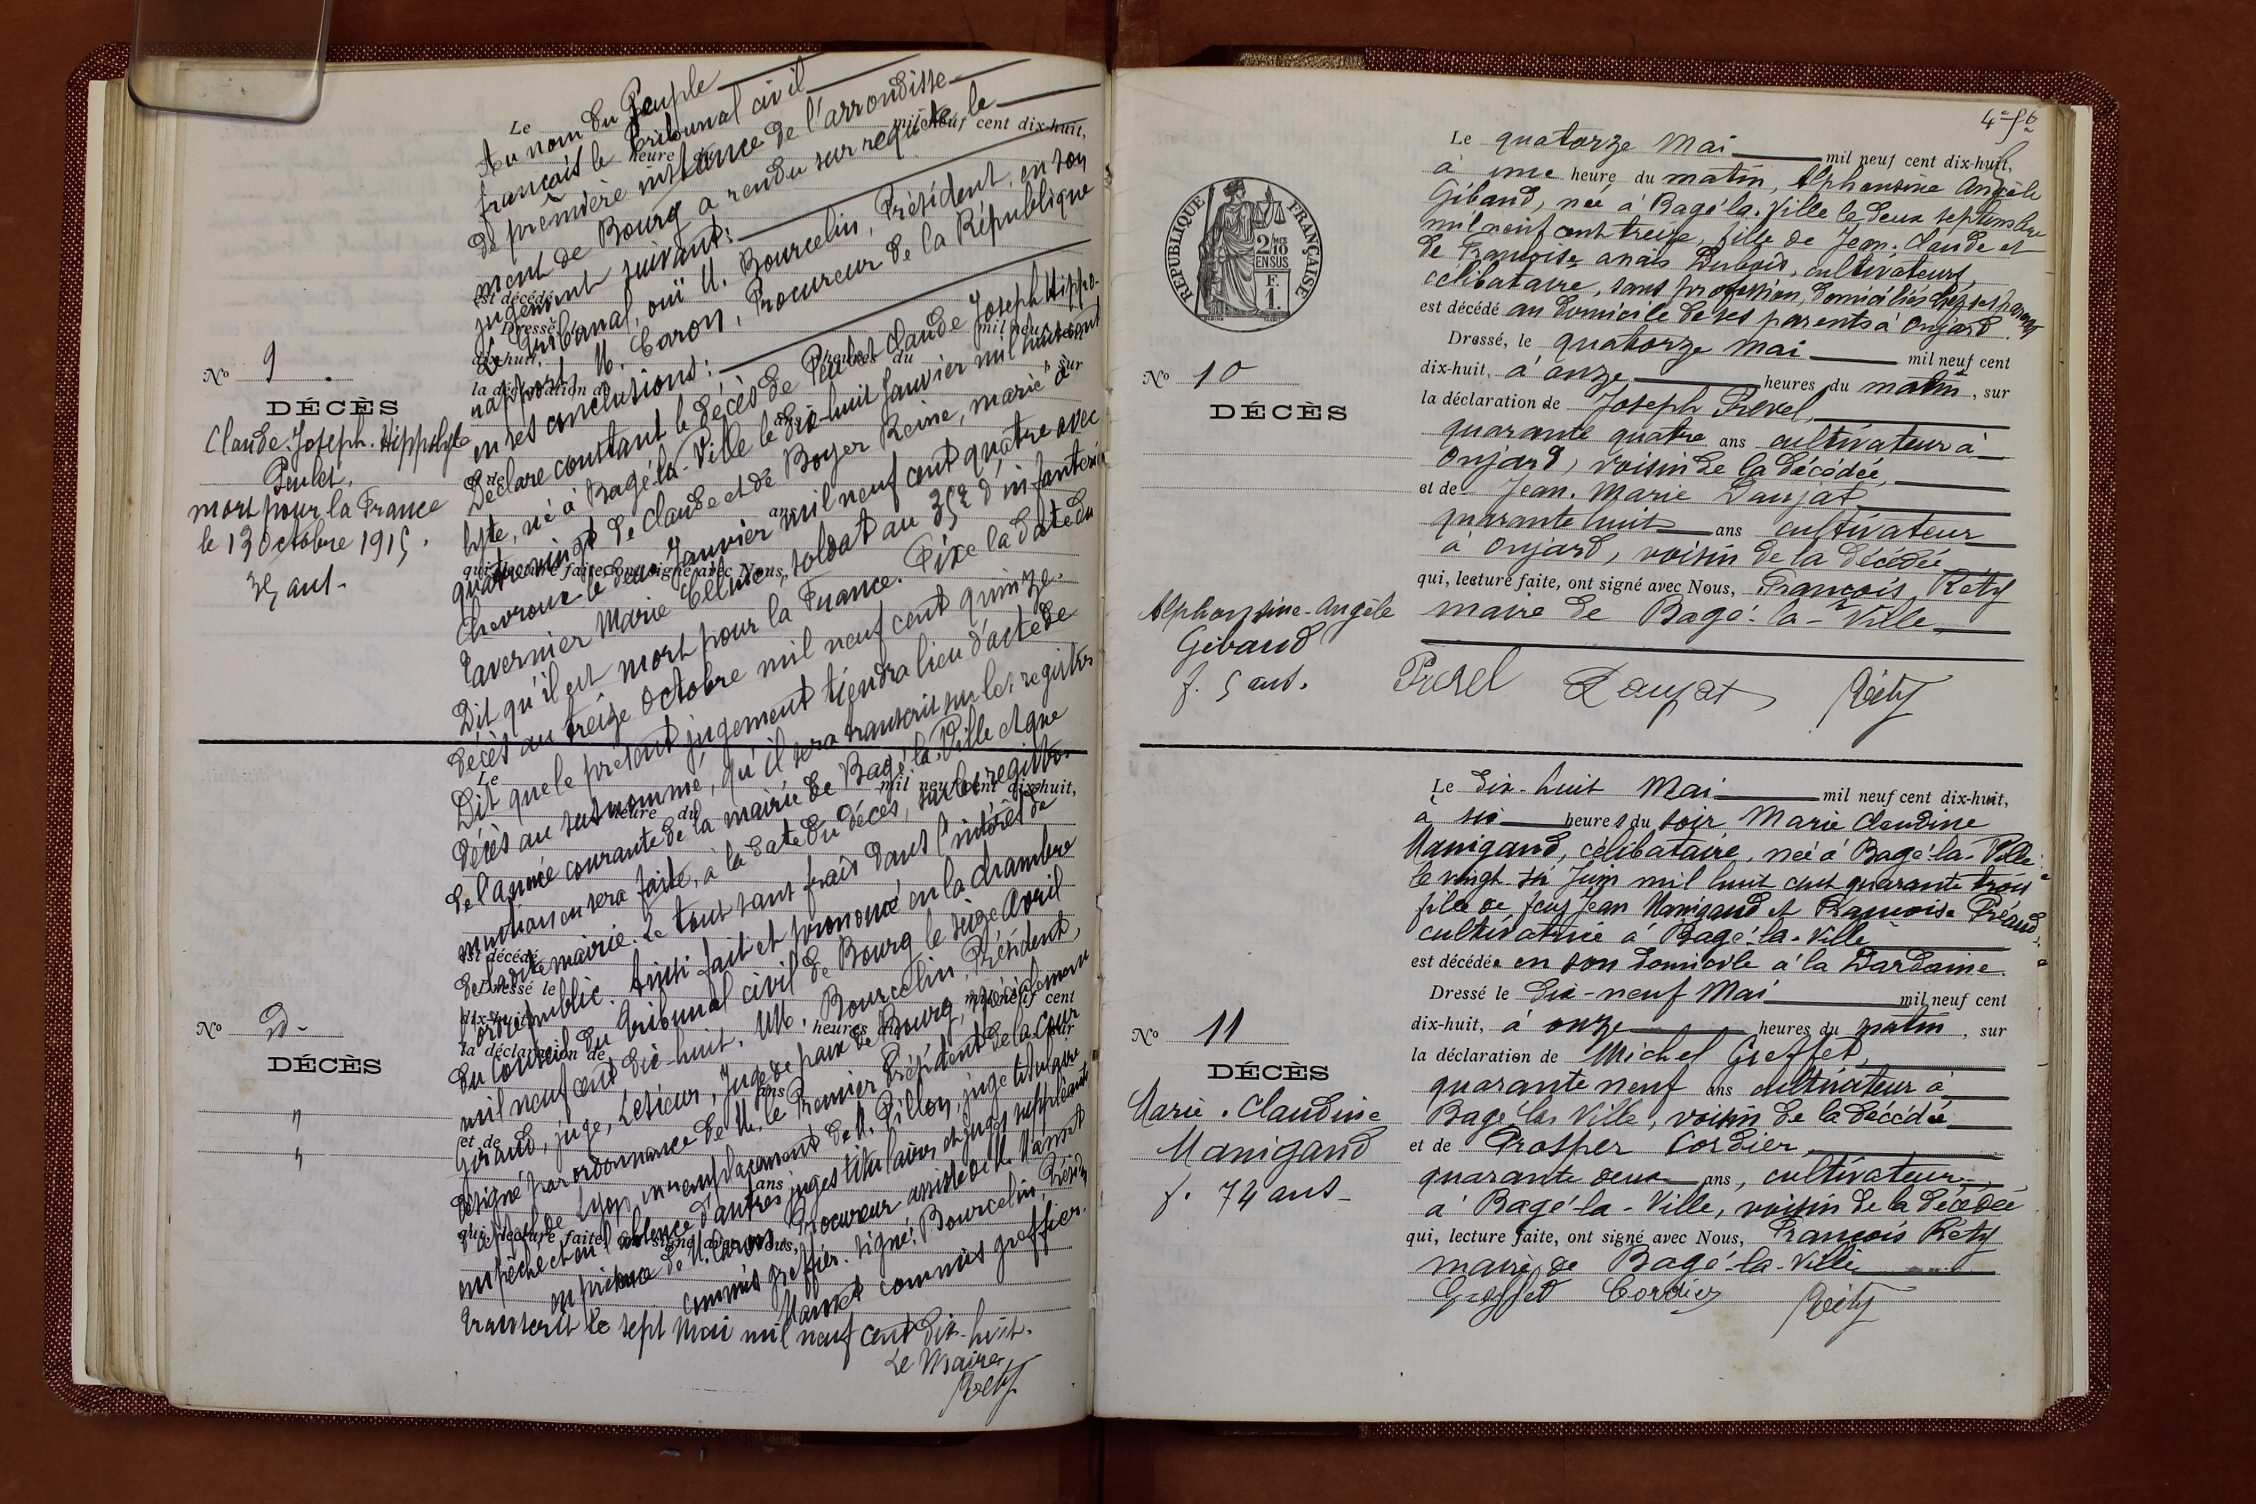 No 9
DÉCÈS
Claude-Joseph-Hippolyte
Peulet,
mort pour la France
le 13 octobre 1915.
35 ans -
Au nom du Peuple
français le Tribunal civil
de première instance de l'arrondisse-
ment de Bourg a rendu sur requête, le
jugement suivant:
Le Tribunal, ouï M. Bourcelin, Président, en son
rapport, M. Caron, Procureur de la République
en ses conclusions:
Déclare constant le décès de Peulet Claude Joseph Hippo-
lyte, né à Bagé-la-Ville le dix-huit Janvier mil huit cent
quatre vingt de Claude et de Boyer Reine, marié à
Chevroux le deux Janvier mil neuf cent quatre avec
Tavernier Marie Célina, soldat au 35e d'infanterie
Dit qu'il est mort pour la France. Fixe la date du
décès au treize octobre mil neuf cent quinze.
Dit que le présent jugement tiendra lieu d'acte de
décès au susnommé, qu'il sera transcrit sur les registres
de l'année courante de la mairie de Bagé-la-Ville et que
mention en sera faite, à la date du décès, sur les registres
de la dite mairie. Le tout sans frais dans l'intérêt de
l'ordre public. Ainsi fait et prononcé en la chambre
du Conseil du Tribunal civil de Bourg le seize Avril
mil neuf cent dix-huit. MM. Bourcelin, Président,
Giraud, juge, Lesieur, Juge de paix de Bourg, spécialement
désigné par ordonnance de M. le Premier Président de la Cour
d'appel de Lyon, en remplacement de M. Pillon, juge titulaire
empêché et en l'absence d'autres juges titulaires et juges suppléants
en présence de M. Caron, Procureur assisté de M. Mamet
commis greffier. Signé: Bourcelin, Présid.
Mamet commis greffier.
Transcrit le sept Mai mil neuf cent dix-huit.
Le Maire
Réty
No D-
DÉCÈS
"
"
REPUBLIQUE FRANÇAISE
2/10 EN SUS
F.
1.
No 10
DÉCÈS
Alphonsine-Angèle
Giband
f. 5 ans.
Le quatorze Mai mil neuf cent dix-huit,
à une heure du matin, Alphonsine Angèle
Giband, née à Bagé-la-Ville le deux septembre
mil neuf cent treize, fille de Jean-Claude et
de Françoise anaïs Dubois, cultivateurs,
célibataire, sans profession, domiciliée chez ses parents
est décédé au domicile de ses parents à Onjard.
Dressé, le quatorze Mai mil neuf cent
dix-huit, à onze heures du matin, sur
la déclaration de Joseph Prevel,
quarante quatre ans cultivateur à
Onjard, voisin de la décédée,
et de Jean-Marie Daujat
quarante huit ans cultivateur
à Onjard, voisin de la décédée
qui, lecture faite, ont signé avec Nous, François Réty
maire de Bagé-la-Ville
Prevel Daujat Réty
No 11
DÉCÈS
Marie-Claudine
Manigand
f. 74 ans-
Le dix-huit Mai mil neuf cent dix-huit,
à six heures du soir Marie Claudine
Manigand, célibataire, née à Bagé-la-Ville
le vingt six Juin mil huit cent quarante trois
fille de feus Jean Manigand et Françoise Préaud,
cultivatrice à Bagé-la-Ville
est décédée en son domicile à la Dardaine.
Dressé le dix-neuf Mai mil neuf cent
dix-huit, à onze heures du matin, sur
la déclaration de Michel Greffet,
quarante neuf ans cultivateur à
Bagé-la-Ville, voisin de la décédée
et de Prosper Cordier
quarante deux ans, cultivateur
à Bagé-la-Ville, voisin de la décédée
qui, lecture faite, ont signé avec Nous, François Réty
maire de Bagé-la-Ville
Greffet Cordier Réty